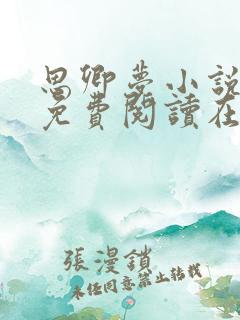 思卿夢小說
免費閱讀在
張漫鎖
未經同意禁止轉載